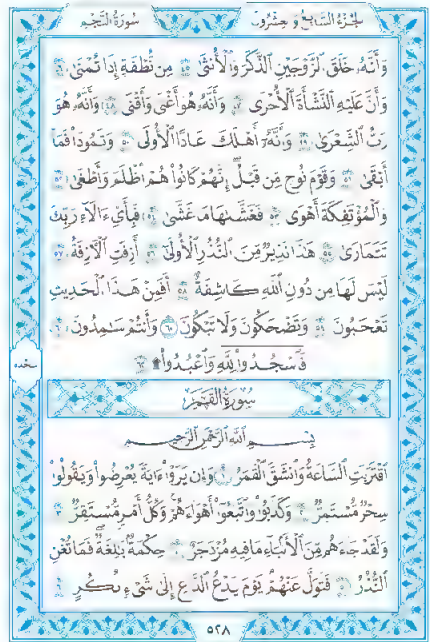 الجزء السابع وعشرون سورة النجم
وَأَنَّهُۥ خَلَقَ ٱلزَّوْجَيْنِ ٱلذَّكَرَ وَٱلْأُنثَىٰ ٤٥ مِن نُّطْفَةٍ إِذَا تُمْنَىٰ ٤٦
وَأَنَّ عَلَيْهِ ٱلنَّشْأَةَ ٱلْأُخْرَىٰ ٤٧ وَأَنَّهُۥ هُوَ أَغْنَىٰ وَأَقْنَىٰ ٤٨ وَأَنَّهُۥ هُوَ
رَبُّ ٱلشِّعْرَىٰ ٤٩ وَأَنَّهُۥٓ أَهْلَكَ عَادًا ٱلْأُولَىٰ ٥٠ وَثَمُودَا۟ فَمَآ
أَبْقَىٰ ٥١ وَقَوْمَ نُوحٍ مِّن قَبْلُ إِنَّهُمْ كَانُوا۟ هُمْ أَظْلَمَ وَأَطْغَىٰ ٥٢
وَٱلْمُؤْتَفِكَةَ أَهْوَىٰ ٥٣ فَغَشَّىٰهَا مَا غَشَّىٰ ٥٤ فَبِأَىِّ ءَالَآءِ رَبِّكَ
تَتَمَارَىٰ ٥٥ هَٰذَا نَذِيرٌ مِّنَ ٱلنُّذُرِ ٱلْأُولَىٰٓ ٥٦ أَزِفَتِ ٱلْءَازِفَةُ ٥٧
لَيْسَ لَهَا مِن دُونِ ٱللَّهِ كَاشِفَةٌ ٥٨ أَفَمِنْ هَٰذَا ٱلْحَدِيثِ
تَعْجَبُونَ ٥٩ وَتَضْحَكُونَ وَلَا تَبْكُونَ ٦٠ وَأَنتُمْ سَٰمِدُونَ ٦١
فَٱسْجُدُوا۟ لِلَّهِ وَٱعْبُدُوا۟ ۩ ٦٢
سجده
سورة القمر
بِسْمِ ٱللَّهِ ٱلرَّحْمَٰنِ ٱلرَّحِيمِ
ٱقْتَرَبَتِ ٱلسَّاعَةُ وَٱنشَقَّ ٱلْقَمَرُ ١ وَإِن يَرَوْا۟ ءَايَةً يُعْرِضُوا۟ وَيَقُولُوا۟
سِحْرٌ مُّسْتَمِرٌّ ٢ وَكَذَّبُوا۟ وَٱتَّبَعُوٓا۟ أَهْوَآءَهُمْ وَكُلُّ أَمْرٍ مُّسْتَقِرٌّ ٣
وَلَقَدْ جَآءَهُم مِّنَ ٱلْأَنۢبَآءِ مَا فِيهِ مُزْدَجَرٌ ٤ حِكْمَةٌۢ بَٰلِغَةٌ فَمَا تُغْنِ
ٱلنُّذُرُ ٥ فَتَوَلَّ عَنْهُمْ يَوْمَ يَدْعُ ٱلدَّاعِ إِلَىٰ شَىْءٍ نُّكُرٍ ٦
٥٢٨